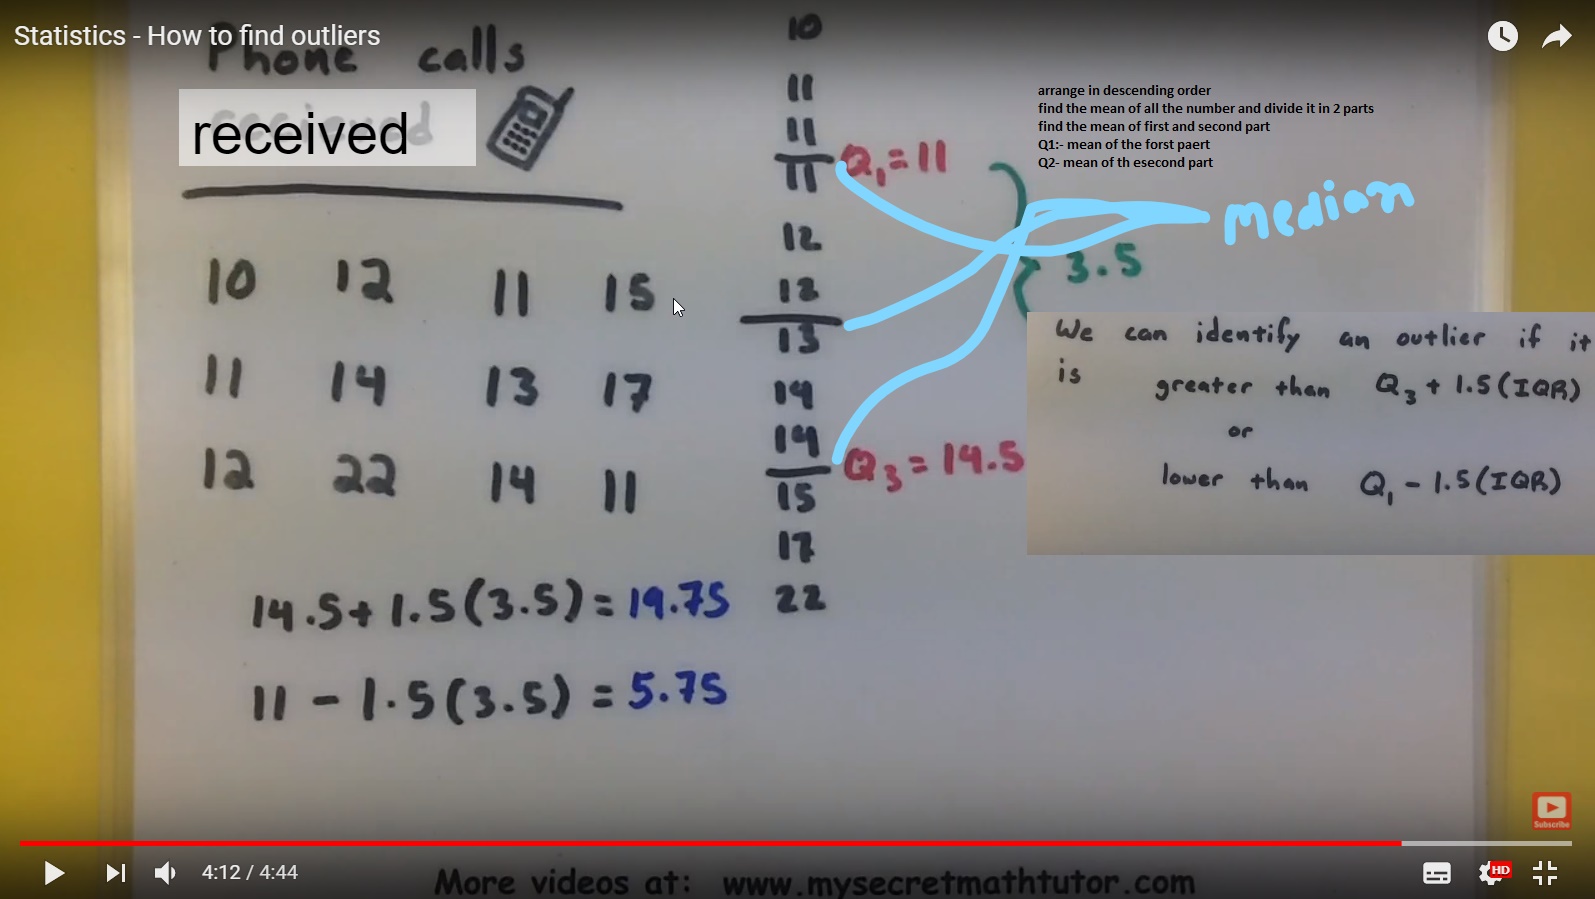 Statistics - How to find outliers
Phone calls
received
10 12 11 15
11 14 13 17
12 22 14 11
14.5 + 1.5(3.5) = 19.75
11 - 1.5(3.5) = 5.75
10
11
11
11
Q1 = 11
12
12
13
14
14
Q3 = 14.5
15
17
22
arrange in descending order
find the mean of all the number and divide it in 2 parts
find the mean of first and second part
Q1:- mean of the forst paert
Q2- mean of th esecond part
median
3.5
We can identify an outlier if it
is greater than Q3 + 1.5(IQR)
or
lower than Q1 - 1.5(IQR)
Subscribe
4:12 / 4:44
HD
More videos at: www.mysecretmathtutor.com